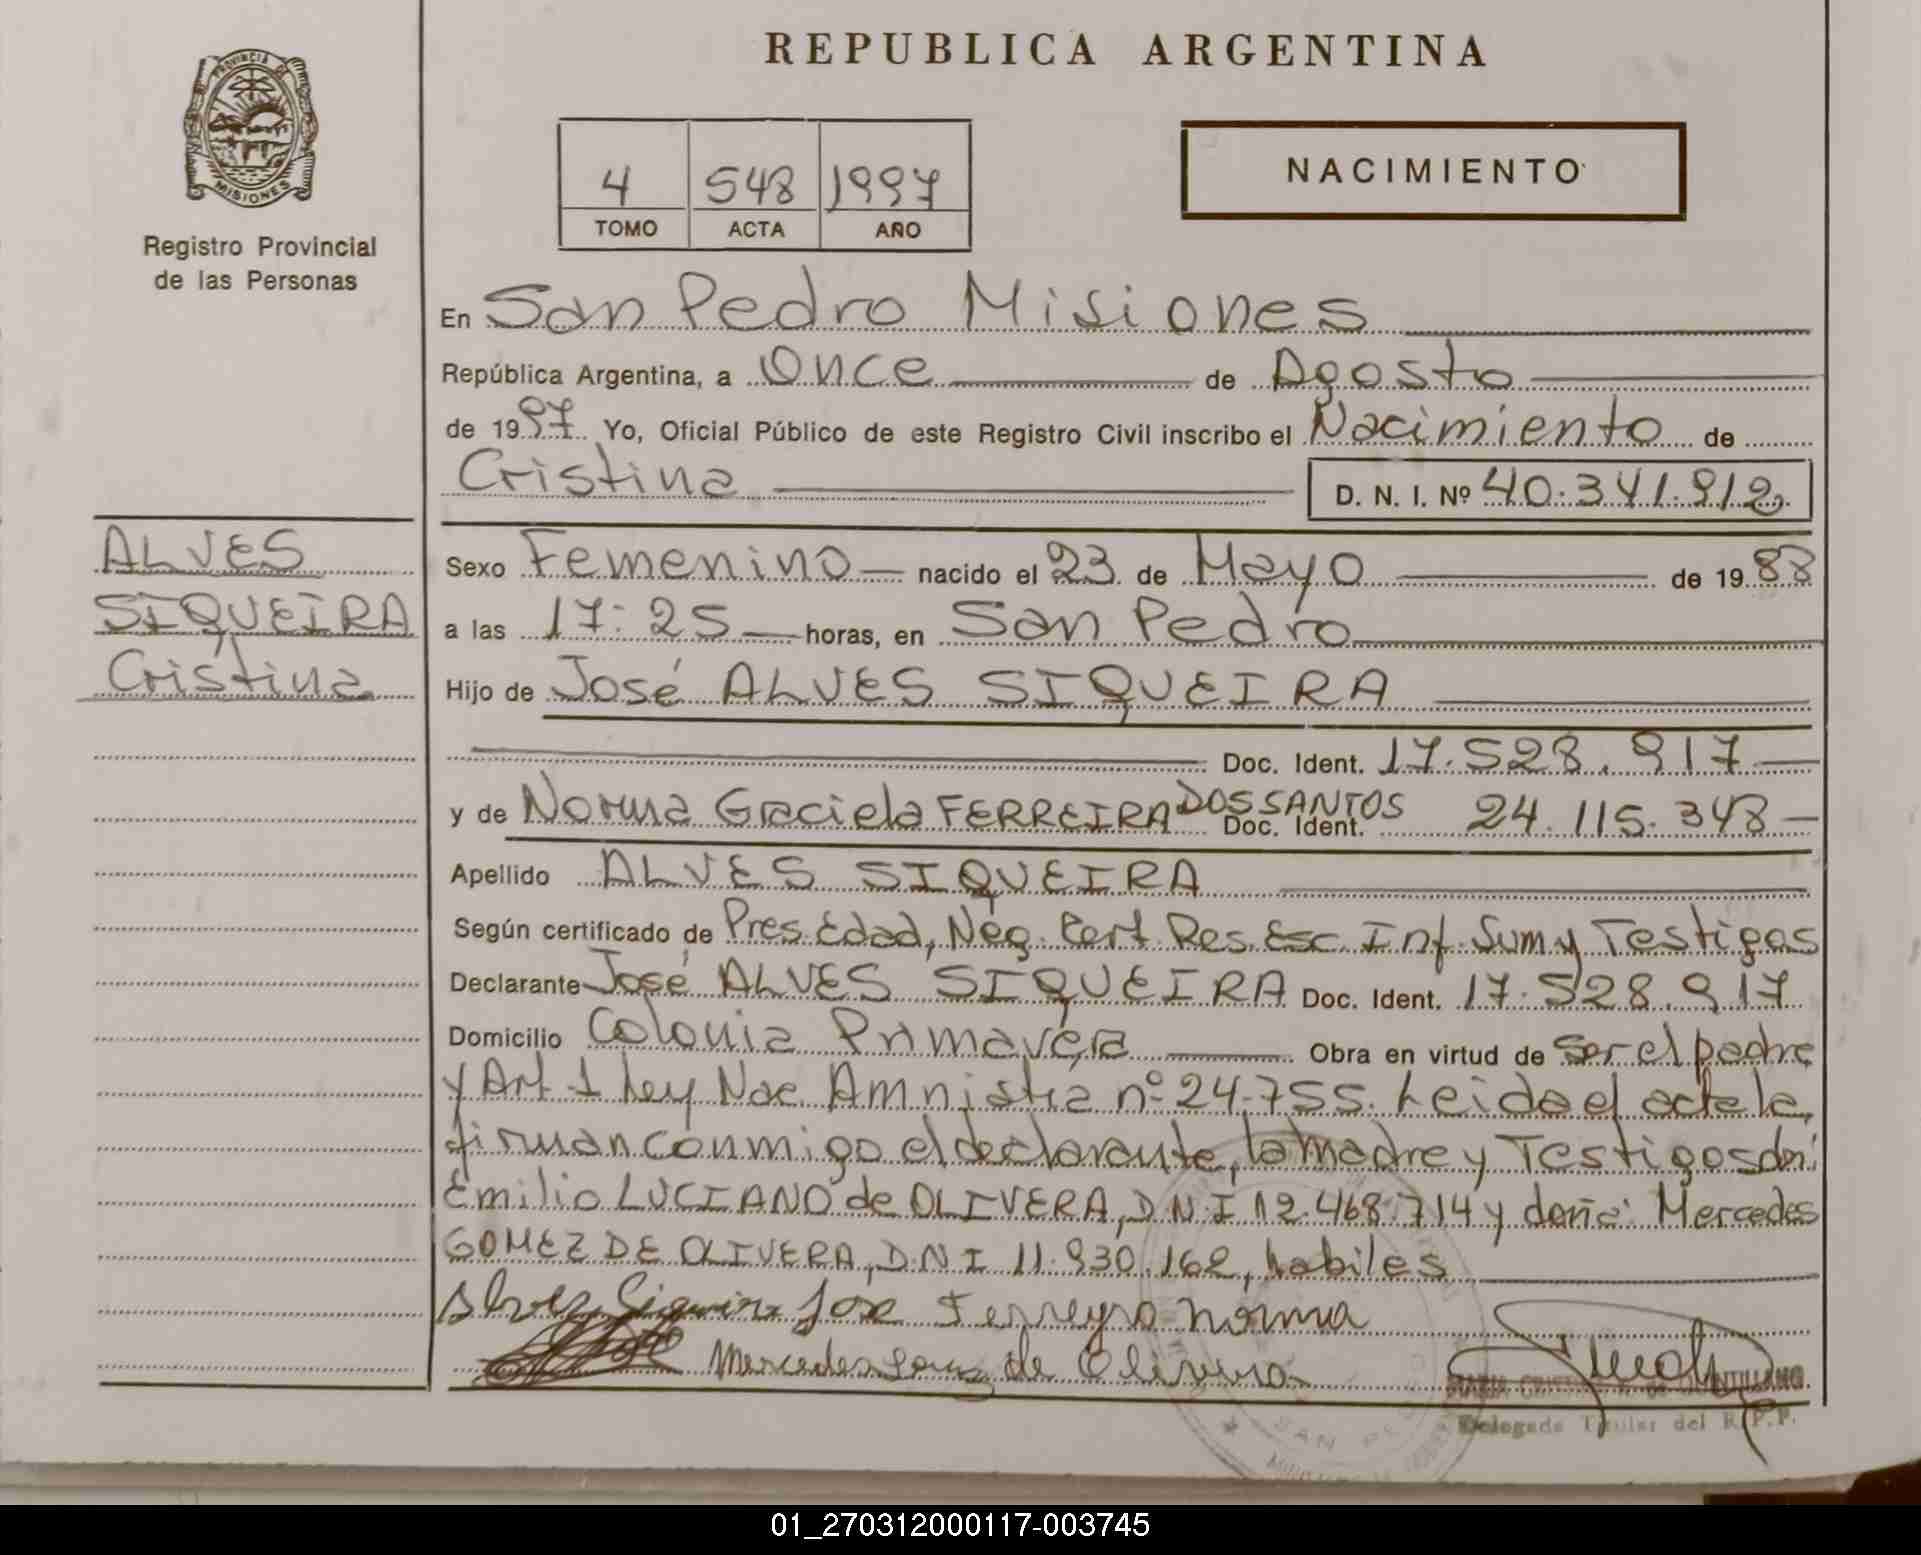 REPUBLICA ARGENTINA
PROVINCIA DE
MISIONES
Registro Provincial
de las Personas
4 548 1997
TOMO ACTA AÑO
NACIMIENTO
En San Pedro Misiones
República Argentina, a Once de Agosto
de 1997 Yo, Oficial Público de este Registro Civil inscribo el Nacimiento de
Cristina D. N. I. Nº 40.341.912
ALVES
SIQUEIRA
Cristina
Sexo Femenino nacido el 23 de Mayo de 1988
a las 17:25 horas, en San Pedro
Hijo de José ALVES SIQUEIRA
Doc. Ident. 17.528.917
y de Norma Graciela FERREIRA DOS SANTOS Doc. Ident. 24.115.348
Apellido ALVES SIQUEIRA
Según certificado de Pres. Edad, Neg. Cert. Res. Esc. Inf. Sum. y Testigos
Declarante José ALVES SIQUEIRA Doc. Ident. 17.528.917
Domicilio Colonia Primavera Obra en virtud de ser el padre
y Art 1 Ley Nac. Amnistia nº 24.755. Leida el acta la
firman conmigo el declarante, la madre y Testigos don:
Emilio LUCIANO de OLIVERA, D.N.I 12.468.714 y doña: Mercedes
GOMEZ DE OLIVERA, D.N.I 11.930.162, habiles
Alvez Siqueira Jose Ferreyra Norma
Mercedes de Olivera
MARIA CRISTINA DE QUINTILLANO
Delegada Titular del R.P.P.
SAN PEDRO
01_270312000117-003745